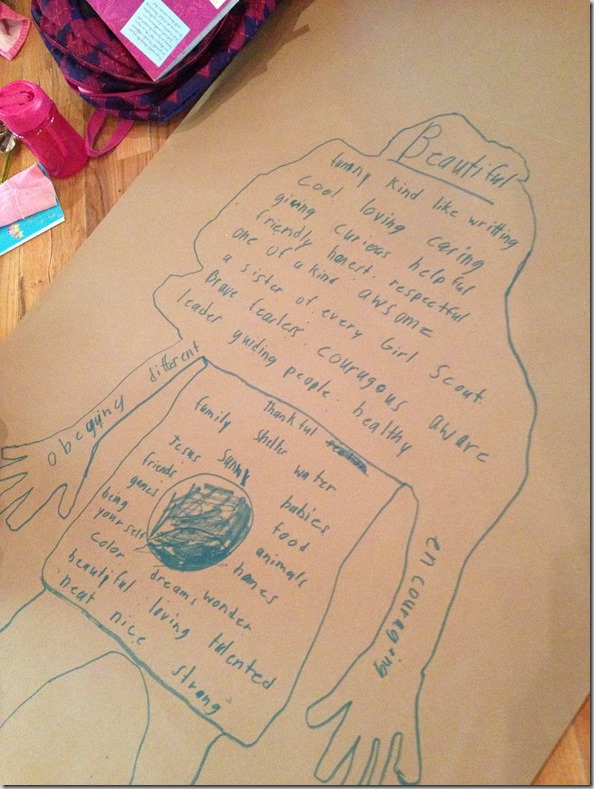 Beautiful
funny kind like writting
cool loving caring
giving curious helpful
friendly honest. respectful
one of a kind awsome
a sister of every Girl Scout.
Brave fearless. courugous aware
leader guiding people. healthy
different
obeying
encouraging
thankful
family shelter water
Jesus sunny babies
friends food
games animals
being homes
yourself
color dreams wonder
beautiful loving talented
neat nice strong